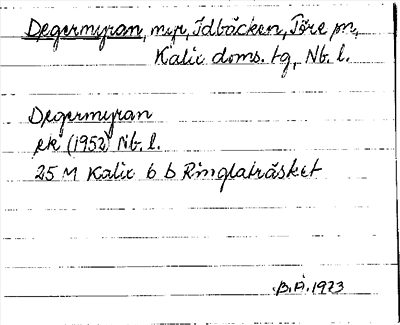 Degermyran, myr, Idbäcken, Töre sn,
Kalix doms. tg, Nb. l.
Degermyran
ek (1952) Nb. l.
25 M Kalix 6 b Ringlaträsket
B.Å. 1973